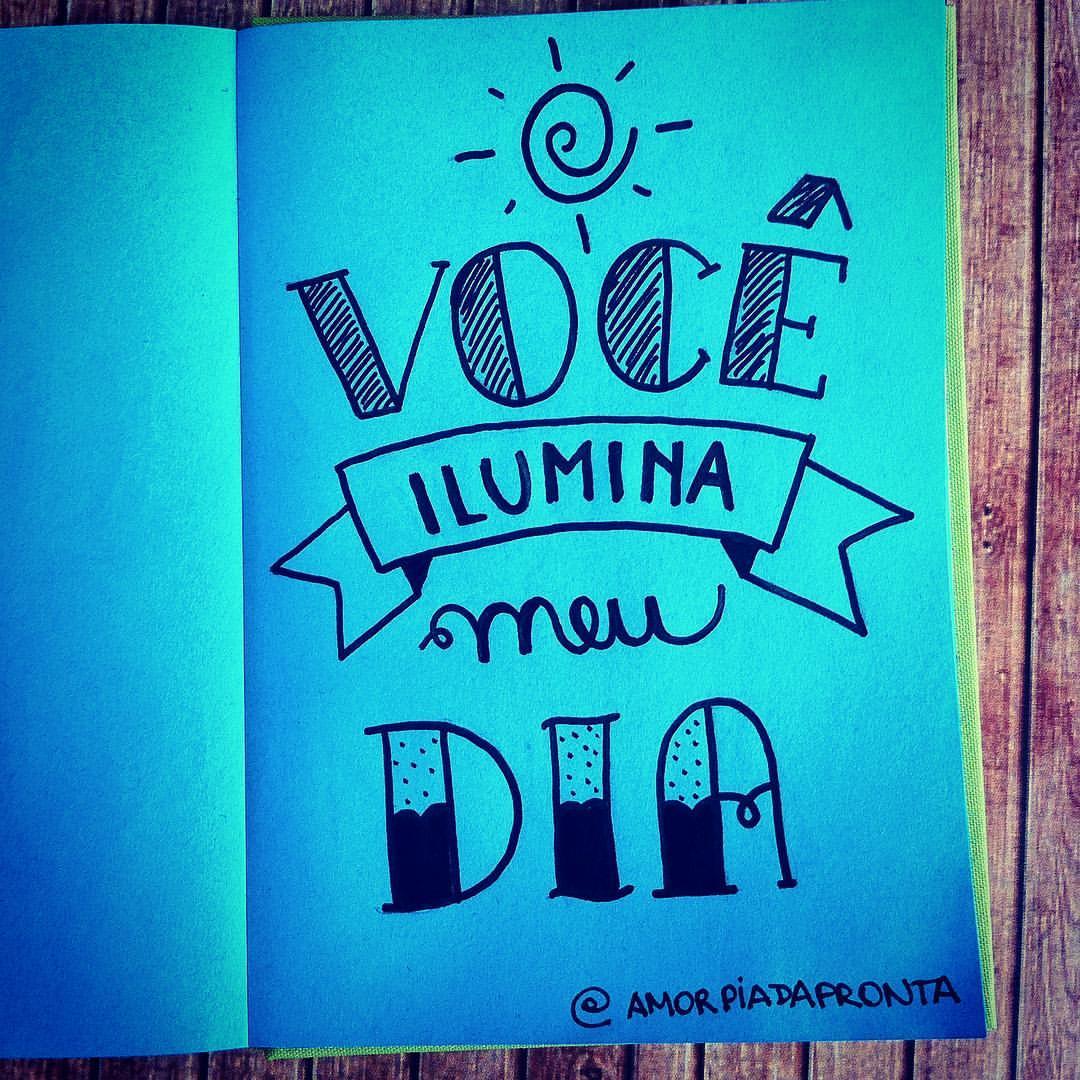 VOCÊ
ILUMINA
meu
DIA
@AMORPIADAPRONTA